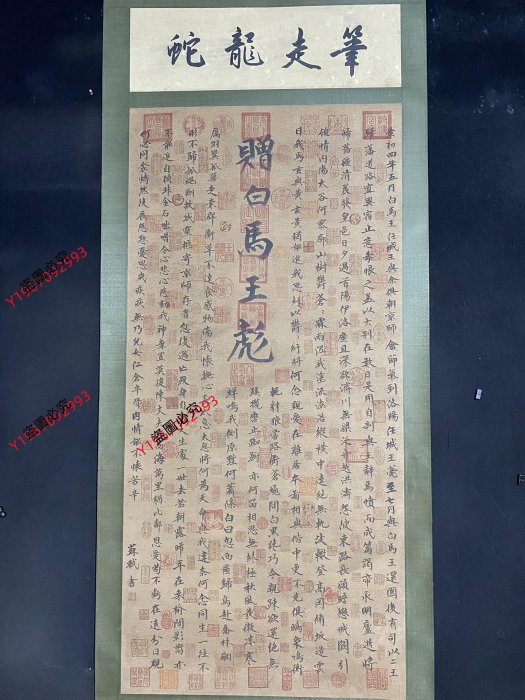 筆走龍蛇
贈白馬王彪
黃初四年五月白馬王任城王與余朝京師會節氣到洛陽任城王薨至七月與白馬王還國後有司以二王
歸藩道路宜異宿止意毒恨之蓋以大別在數日是用自剖與王辭焉憤而成篇謁帝承明廬逝將
歸舊疆清晨發皇邑日夕過首陽伊洛廣且深欲濟川無梁泛舟越洪濤怨彼東路長顧瞻戀城闕引
領情內傷太谷何寥廓山樹鬱蒼蒼霖雨泥我塗流潦浩縱橫中逵絕無軌改轍登高岡修坂造雲
日我馬玄以黃玄黃猶能進我思鬱以紆鬱紆將何念親愛在離居本圖相與偕中更不克俱鴟梟鳴衡
軛豺狼當路衢蒼蠅間白黑讒巧令親疎欲還絕無
蹊攬轡止踟躕亦何留相思無終極秋風發微涼寒
蟬鳴我側原野何蕭條白日忽西匿歸鳥赴喬林翩
厲羽翼孤獸走索群銜草不遑食感物傷我懷撫心太息大息將何為天命與我違奈何念同生一往不
形不歸孤魂翔故城靈柩寄京師存者忽復過亡歿身自衰人生處一世去若朝露晞年在桑榆間影響亦
不能追自顧非金石咄唶令心悲心悲動我神棄置莫復陳丈夫志四海萬里猶比鄰恩愛苟不虧在遠分日親
何必同衾幬然後展慇懃憂思成疾疢無乃兒女仁倉卒骨肉情能不懷苦辛
蘇軾書
盜圖必究
Y1907092993
盜圖必究
Y1907092993
盜圖必究
Y1907092993